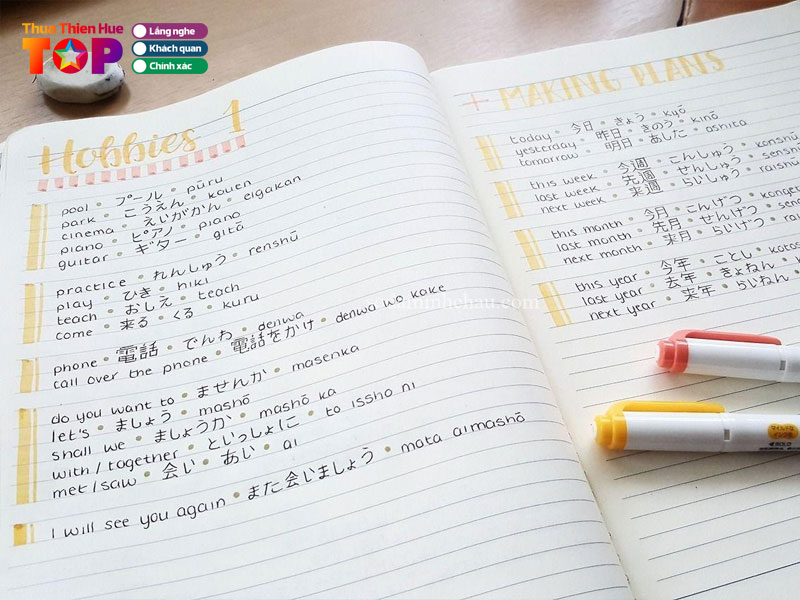 Thua Thien Hue
TOP
Lắng nghe
Khách quan
Chính xác
Hobbies 1
pool • プール • pūru
park • こうえん • kouen
cinema • えいがかん • eigakan
piano • ピアノ • piano
guitar • ギター • gitā
practice • れんしゅう • renshū
play • ひき • hiki
teach • おしえ • teach
come • 来る • くる • kuru
phone • 電話 • でんわ • denwa
call over the phone • 電話をかけ • denwa wo kake
do you want to • ませんか • masenka
let's • ましょう • mashō
shall we • ましょうか • mashō ka
with / together • といっしょに • to issho ni
met / saw • 会い • あい • ai
I will see you again • また会いましょう • mata aimashō
+ MAKING PLANS
today • 今日 • きょう • kyō
yesterday • 昨日 • きのう • kinō
tomorrow • 明日 • あした • ashita
this week • 今週 • こんしゅう • konshū
last week • 先週 • せんしゅう •
next week • 来週 • らいしゅう •
this month • 今月 • こんげつ •
last month • 先月 • せんげつ •
next month • 来月 • らいげつ •
this year • 今年 • ことし •
last year • 去年 • きょねん •
next year • 来年 • らいねん •